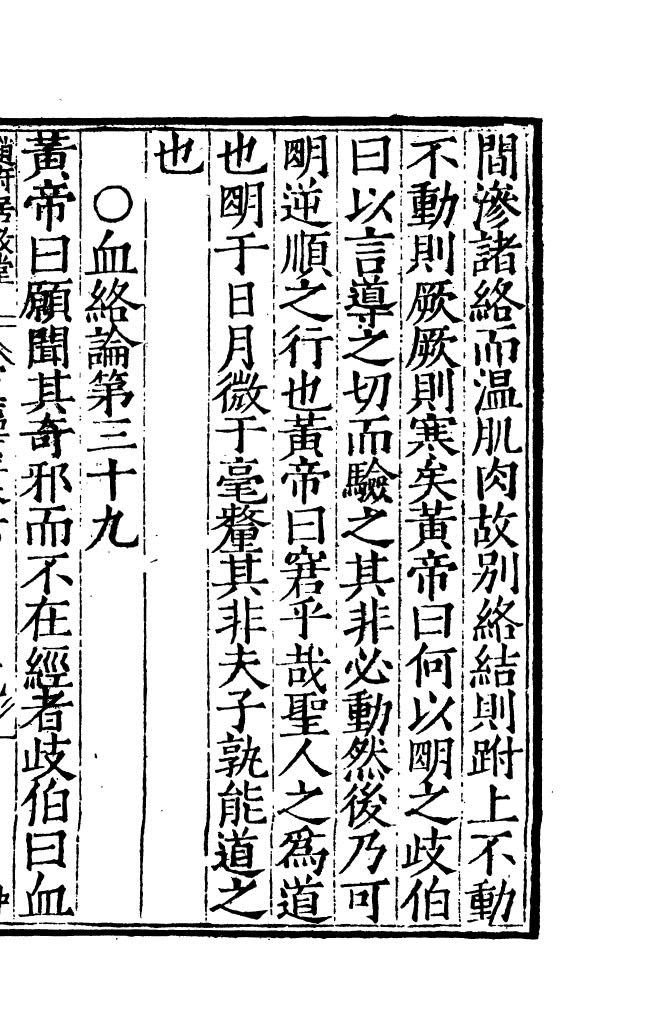 間滲諸絡而温肌肉故别絡結則跗上不動
不動則厥厥則寒矣黃帝曰何以明之歧伯
曰以言導之切而驗之其非必動然後乃可
明逆順之行也黃帝曰窘乎哉聖人之爲道
也明于日月微于毫釐其非夫子孰能道之
也
○血絡論第三十九
黃帝曰願聞其奇邪而不在經者歧伯曰血
趙府居敬堂